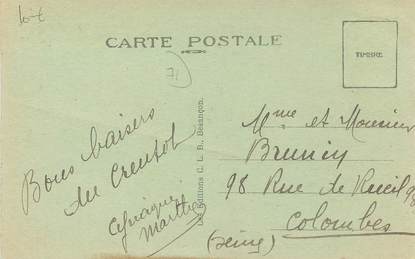 10€
CARTE POSTALE
TIMBRE
71
Bons baisers
du Creusot
Marthe
Les Editions C. L. B., Besançon.
Mme et Monsieur
98 Rue de Rueil 98
Colombes
(Seine)